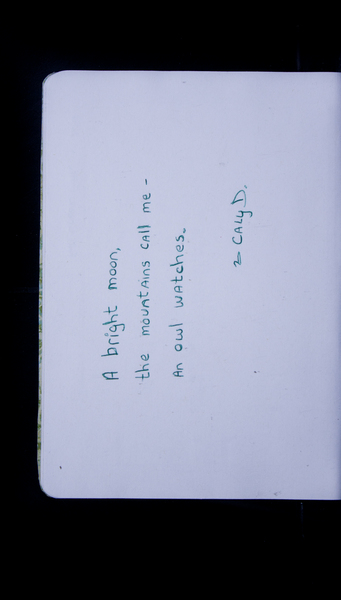 A bright moon,
the mountains call me -
An owl watches.
~ CALY D.